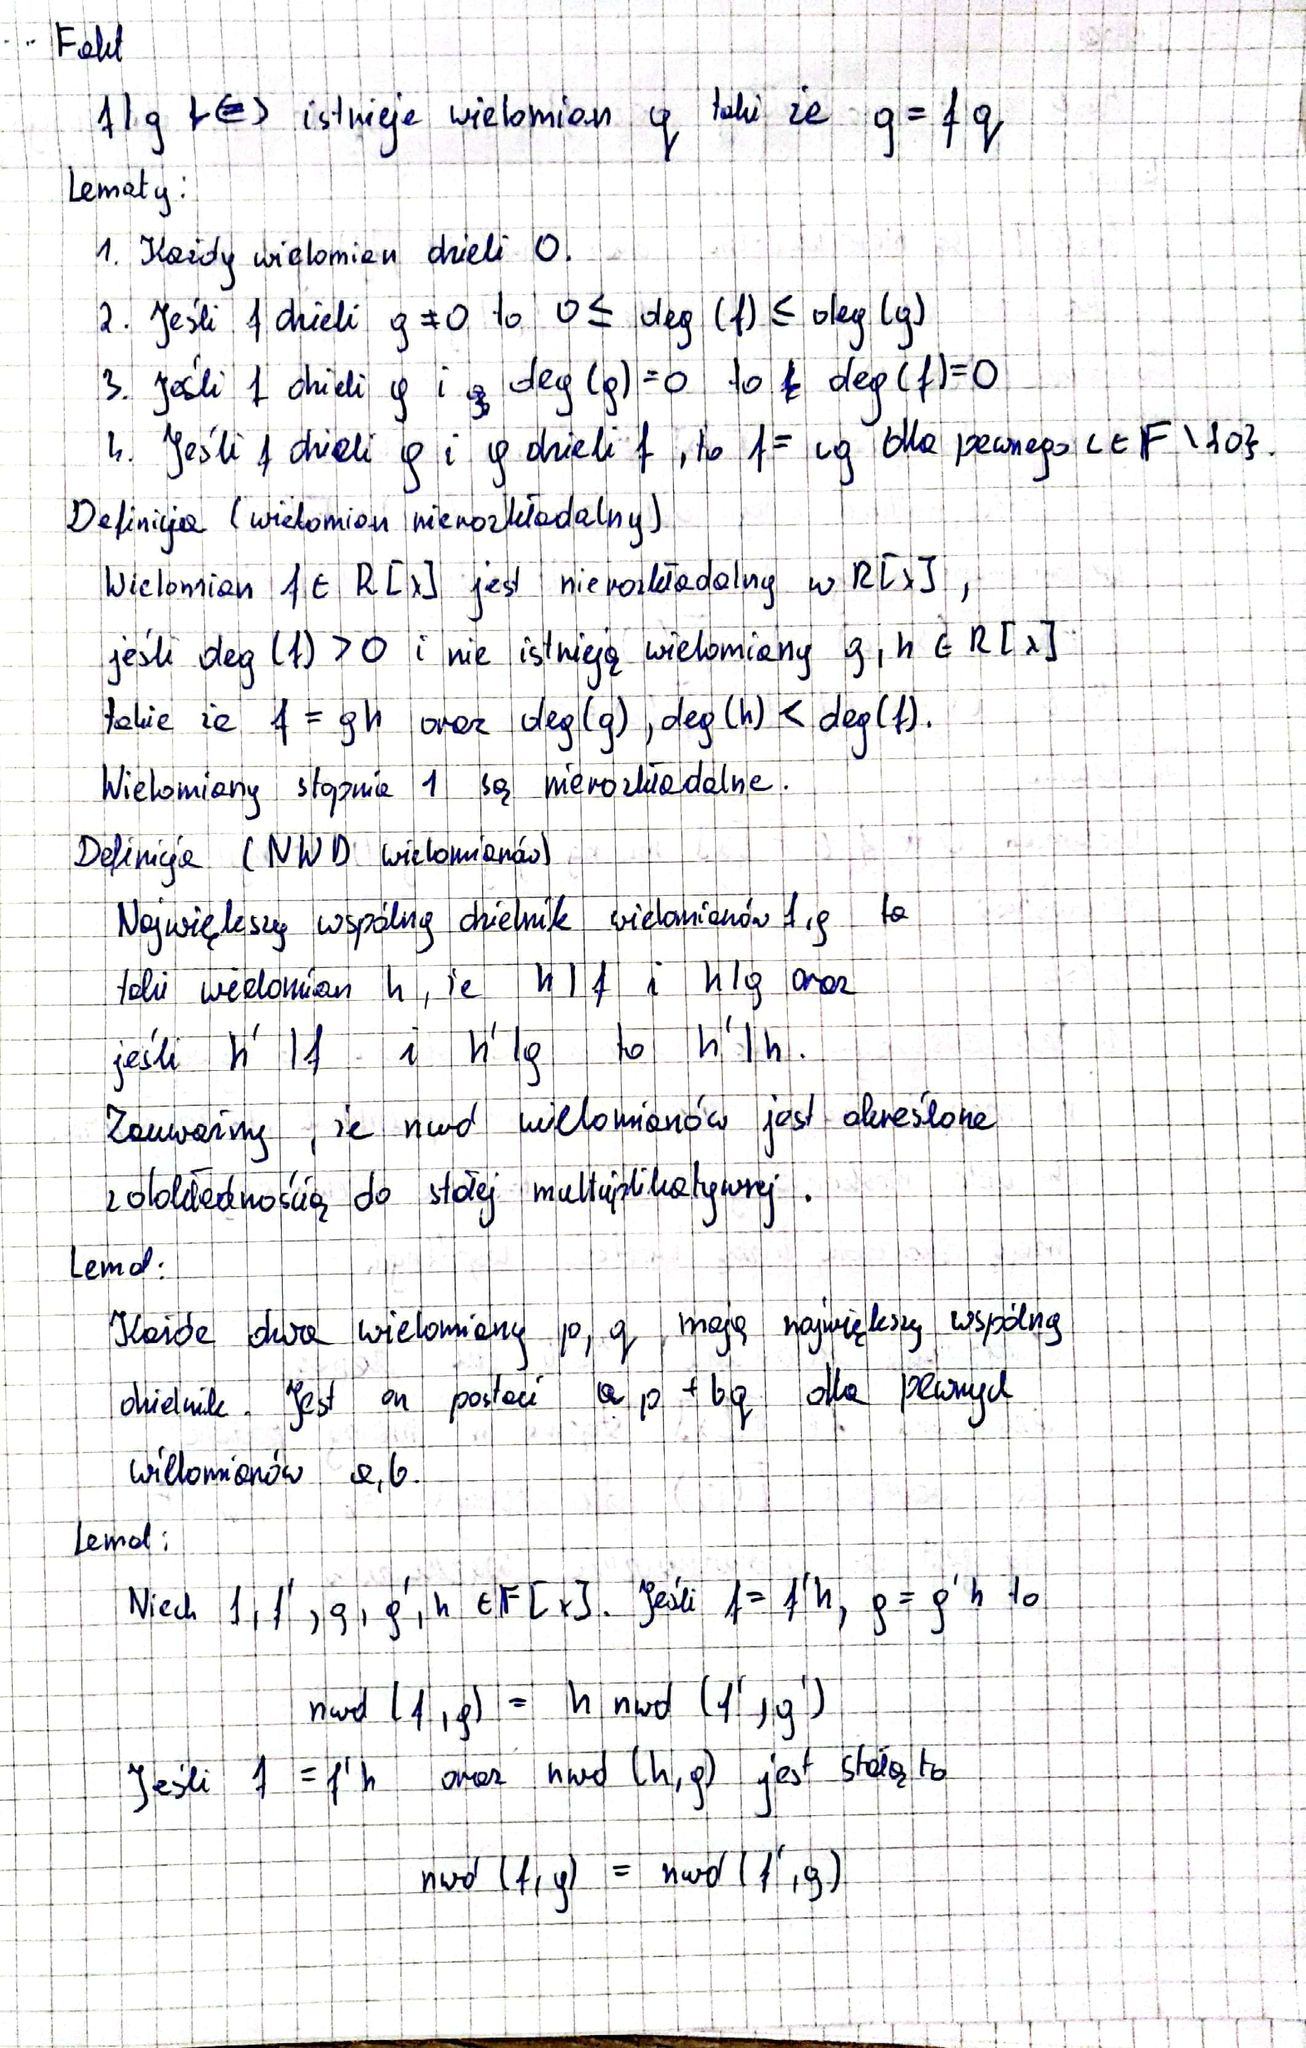 Fakt
f | g <=> istnieje wielomian q taki że g = f q
Lematy:
1. Każdy wielomian dzieli 0.
2. Jeśli f dzieli g ≠ 0 to 0 ≤ deg (f) ≤ deg (g)
3. Jeśli f dzieli g i deg (g) = 0 to deg (f) = 0
4. Jeśli f dzieli g i g dzieli f, to f = cg dla pewnego c ∈ F \ {0}.
Definicja (wielomian nierozkładalny)
Wielomian f ∈ R[x] jest nierozkładalny w R[x],
jeśli deg (f) > 0 i nie istnieją wielomiany g, h ∈ R[x]
takie że f = gh oraz deg(g), deg(h) < deg(f).
Wielomiany stopnia 1 są nierozkładalne.
Definicja (NWD wielomianów)
Największy wspólny dzielnik wielomianów f, g to
taki wielomian h, że h | f i h | g oraz
jeśli h' | f i h' | g to h' | h.
Zauważmy, że nwd wielomianów jest określone
z dokładnością do stałej multiplikatywnej.
Lemat:
Każde dwa wielomiany p, q mają największy wspólny
dzielnik. Jest on postaci a p + b q dla pewnych
wielomianów a, b.
Lemat:
Niech f, f', g, g', h ∈ F[x]. Jeśli f = f'h, g = g'h to
nwd (f, g) = h nwd (f', g')
Jeśli f = f'h oraz nwd (h, g) jest stałą to
nwd (f, g) = nwd (f', g)